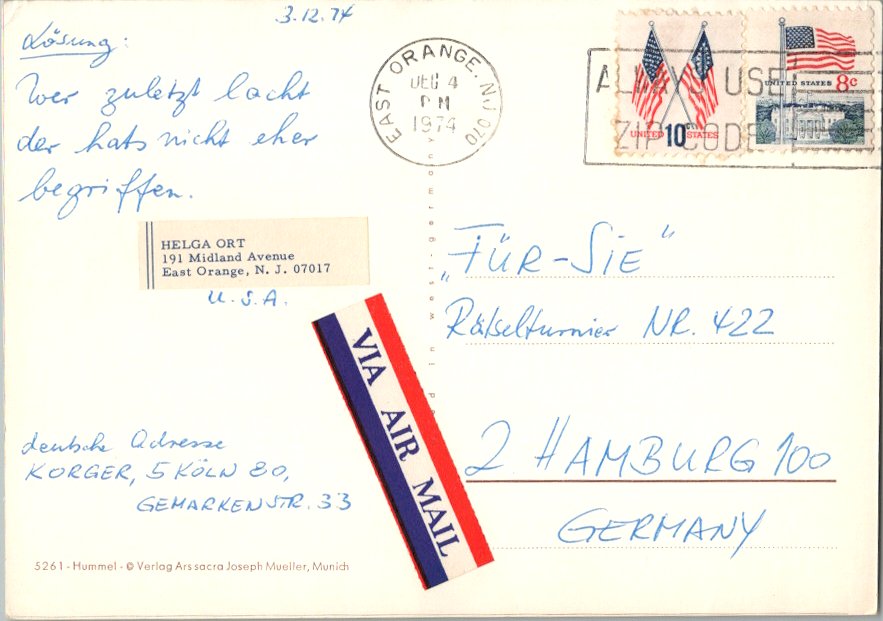 3.12.74
Lösung:
Wer zuletzt lacht
der hats nicht eher
begriffen.
HELGA ORT
191 Midland Avenue
East Orange, N. J. 07017
U.S.A.
deutsche Adresse
KORGER, 5 KÖLN 80,
GEMARKENSTR. 33
5261 - Hummel - © Verlag Ars sacra Joseph Mueller, Munich
EAST ORANGE, NJ 070
DEC 4
PM
1974
ALWAYS USE
ZIP CODE
UNITED 10c STATES
UNITED STATES 8c
in west-germany
VIA AIR MAIL
„FÜR-SIE"
Rätselturnier NR. 422
2 HAMBURG 100
GERMANY